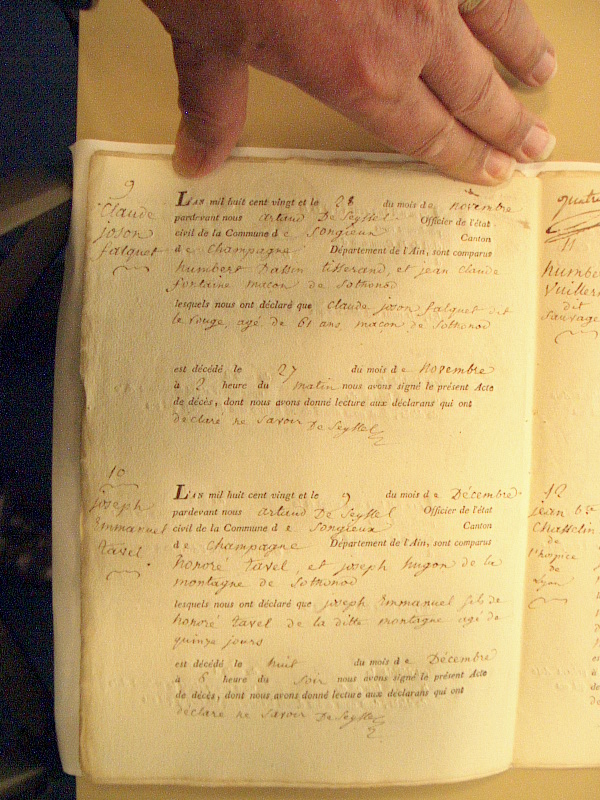 9
Claude
joson
falquet
L'AN mil huit cent vingt et le 28 du mois de novembre
pardevant nous artaud DeSeyssel Officier de l'état
civil de la Commune de Songieux Canton
de champagne Département de l'Ain, sont comparus
humbert Dassin tisserand, et jean claude
fontaine macon de Sothonod
lesquels nous ont déclaré que claude joson falquet dit
le rouge, agé de 61 ans, macon de Sothonod
est décédé le 27 du mois de Novembre
à 2 heure du matin nous avons signé le présent Acte
de décès, dont nous avons donné lecture aux déclarans qui ont
déclaré ne savoir DeSeyssel
10
joseph
Emmanuel
tavel
L'AN mil huit cent vingt et le 9 du mois de Décembre
pardevant nous artaud DeSeyssel Officier de l'état
civil de la Commune de Songieux Canton
de champagne Département de l'Ain, sont comparus
honoré tavel, et joseph hugon de la
montagne de Sothonod
lesquels nous ont déclaré que joseph Emmanuel fils de
honoré tavel de la ditte montagne agé de
quinze jours
est décédé le huit du mois de Décembre
à 6 heure du soir nous avons signé le présent Acte
de décès, dont nous avons donné lecture aux déclarans qui ont
déclaré ne savoir DeSeyssel
11
dit
Sauvage
12
jean
Chasselin
de
l'hospice
de
Lyon